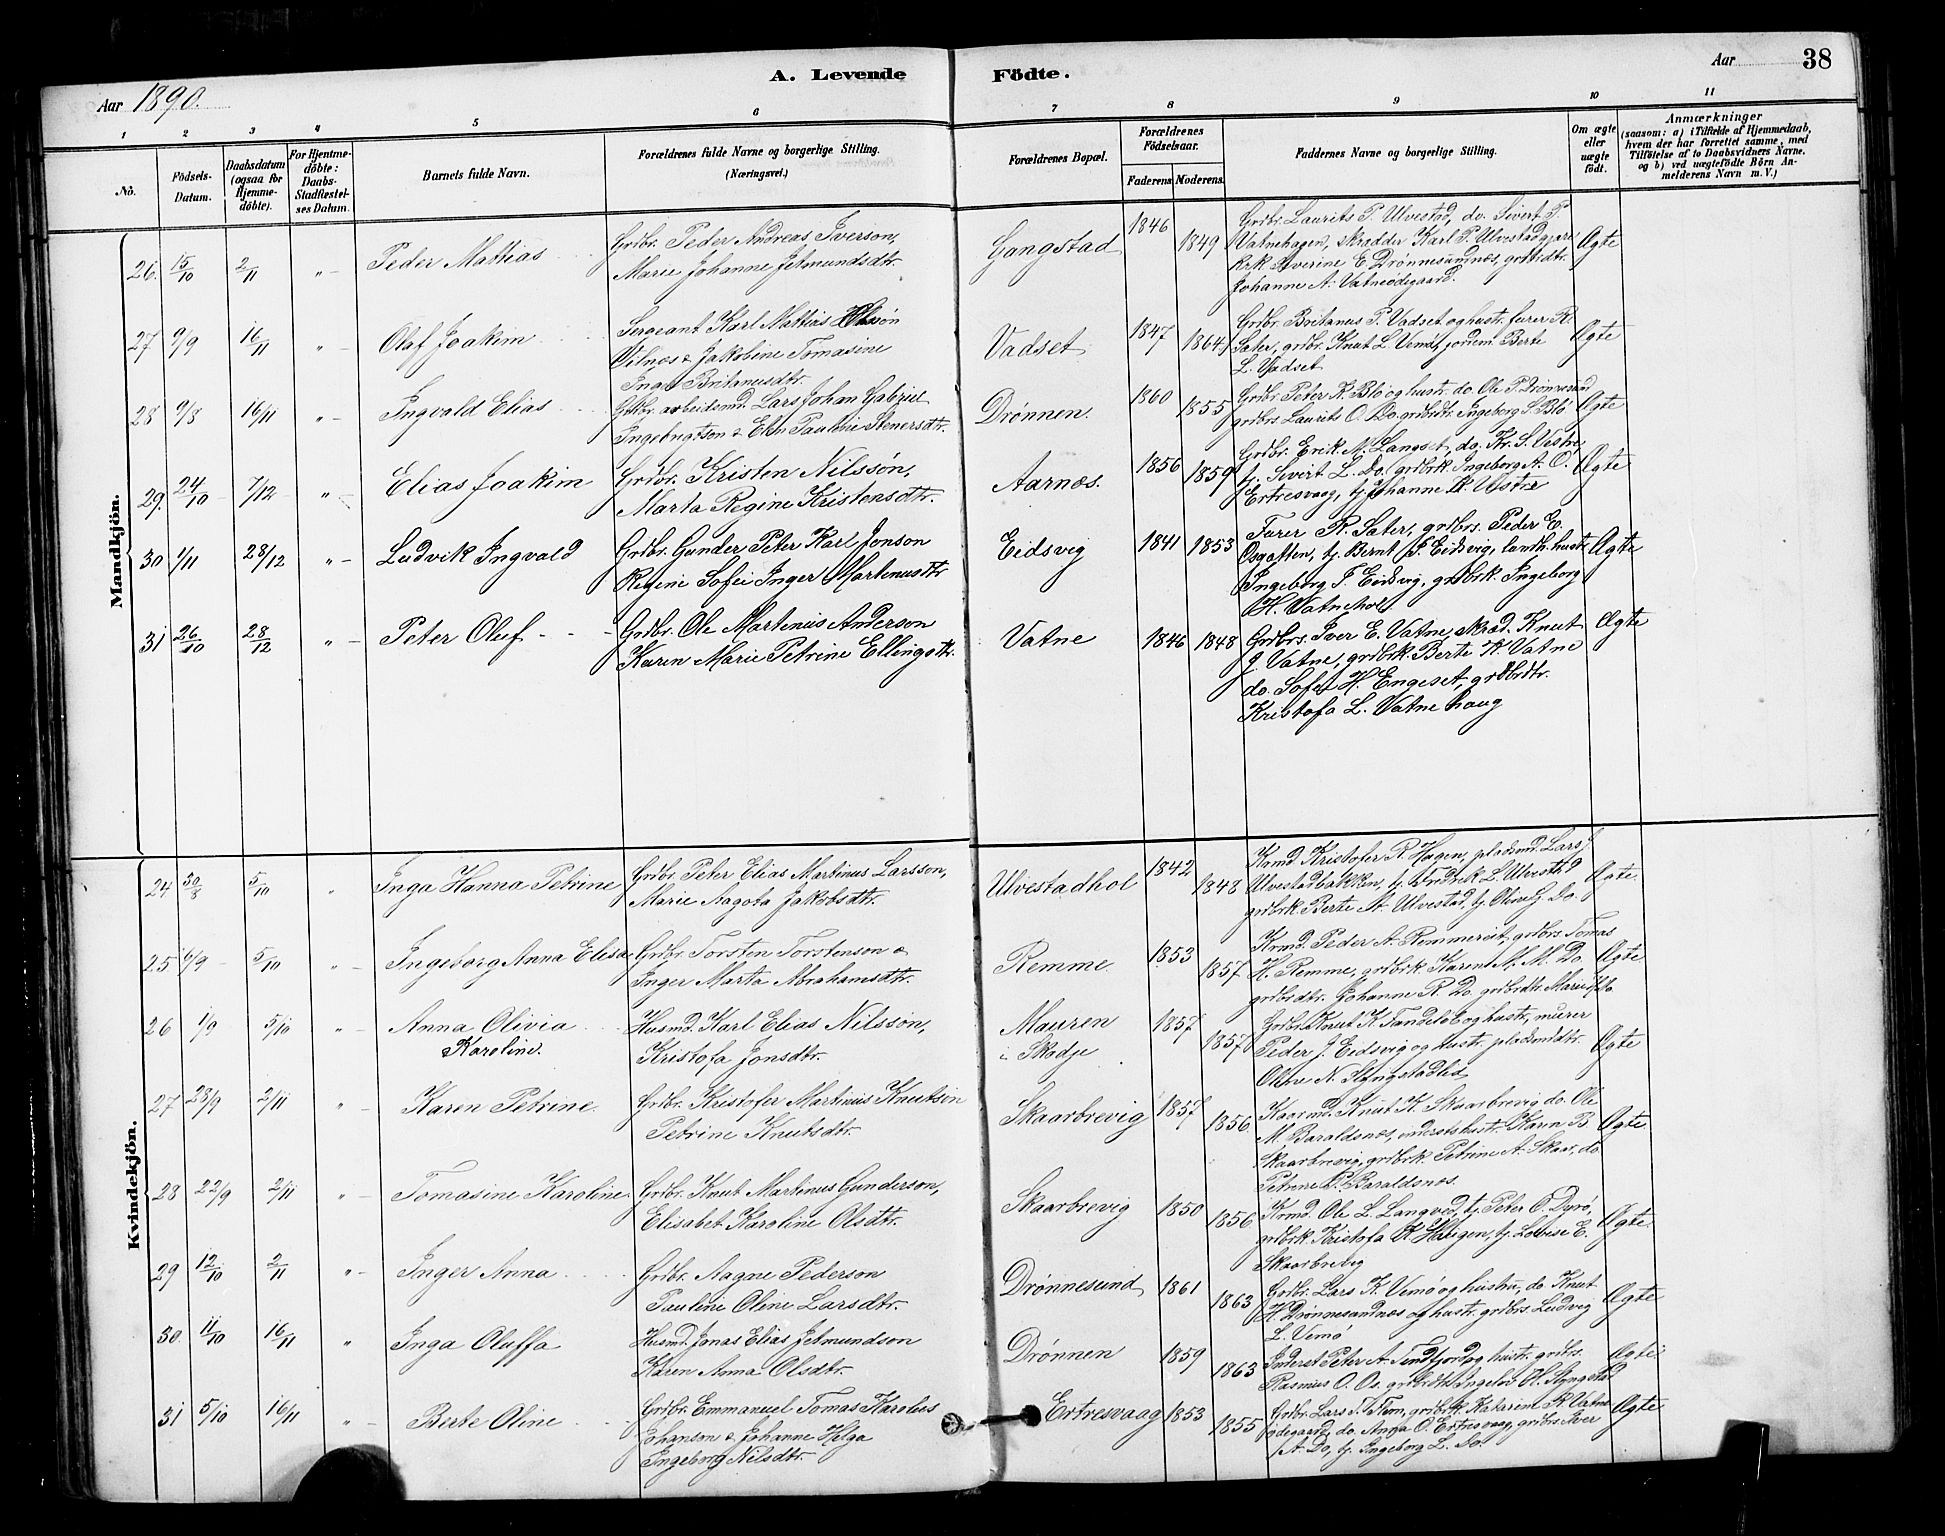 38
Aar
A. Levende Födte.
Aar 1890.
1 2 3 4 5 6 7 8 9 10 11
No.
Födsels-
Datum.
Daabsdatum
(ogsaa for
Hjemme-
döbte).
For Hjemme-
döbte:
Daabs-
Stadfæstel-
ses Datum.
Barnets fulde Navn.
Forældrenes fulde Navne og borgerlige Stilling.
(Næringsvei.)
Forældrenes Bopæl.
Forældrenes
Födselsaar.
Faderens. Moderens.
Faddernes Navne og borgerlige Stilling.
Om ægte
eller
uægte
født.
Anmærkninger
(saasom: a) i Tilfælde af Hjemmedaab,
hvem der har forrettet samme, med
Tilföielse af to Daabsvidners Navne.
og b) ved uægtefödte Börn An-
melderens Navn m. V.)
Mandkjön.
26. 15/10 2/11 " Peder Mathias Grdbr. Peder Andreas Iverson,
Marie Johanne Jetmundsdtr. Gangstad 1846 1849
Grdbr. Laurits P. Ulvestad, do. Sivert P.
Vatnehagen, skrædder Karl P. Ulvestad
Severine E. Drønnesundnes, grdbrdtr.
Johanne A. Vatneødegaard. Ægte
27 9/9 16/11 " Olaf Joakim Sergeant Karl Mathias
Jakobine Tomasine
Inga Britanusdtr. Vadset 1847 1864
Grdbr. Britanus P. Vadset og hustr. furer R.
Sater, grdbr. Knut L. Berte
L. Vadset Ægte
28 9/8 16/11 " Ingvald Elias Grdbr. arbeidsmd. Lars Johan Gabriel
Ingebrigtson & Elen Pauline Stenersdtr. Drønnen. 1860 1855
Grdbr. Peter K. Blø og hustr. do. Ole P. Drønnesund
grdbrs Laurits O. Do. grdbrdtr. Ingeborg S. Blø Ægte
29. 24/10 7/12 " Elias Joakim Grdbr. Kristen Nilssøn,
Marta Regine Kristensdtr. Aarnæs. 1856 1859
Grdbr. Erik N. Langset, do. Kr. S. Vestre,
tj. Sivert L. Do. grdbrk Ingeborg A. O.
Ertresvaag, tj. Johanne Ægte
30 1/11 28/12 " Ludvik Ingvald Grdbr. Gunder Peter Karl Jonson
Regine Sofie Inger Martinusdtr Eidsvig 1841 1853
Furer R. Sater, grdbrs. Peder E.
tj. Bernt J. Eidsvig, landh. hustr
Ingeborg T. Eidsvig, grdbrk. Ingeborg
H. Vatnehol Ægte
31 26/10 28/12 " Peter Oluf Grdbr. Ole Martinus Anderson
Karen Marie Petrine Ellingsdtr. Vatne 1846 1848
Grdbrs. Iver E. Vatne, skræd. Knut
J. Vatne, grdbrk. Berte K. Vatne
do. Sofie H. Engeset, grdbrdtr.
Kristofa L. Vatnehaug Ægte
Kvindekjön.
24 30/8 5/10 " Inga Hanna Petrine Grdbr. Peter Elias Martinus Larsson,
Marie Aagota Jakobsdtr. Ulvestadhol 1842 1848
Krmd. Kristofer R. Hagen, pladsmd. Lars J.
Ulvestadbakken, tj. Fredrik L. Ulvestad
grdbrk. Berte M. Ulvestad, tj. Oline G. Do. Ægte
25 16/9 5/10 " Ingeborg Anna Elisa Grdbr. Torsten Torstenson &
Inger Marta Abrahamsdtr. Remme 1853 1857
Krmd. Peder A. Remmereit, grdbrs. Tomas
H. Remme, grdbrk. Karen M. M. Do.
grdbrdtr. Johanne R. Do. grdbrdtr. Marie Do. Ægte
26 1/9 5/10 " Anna Olivia
Karoline. Husmd. Karl Elias Nilssøn,
Kristofa Jonsdtr. Mauren
i Skodje 1857 1857
Grdbr. Knut K. og hustr, murer
Peder J. Eidsvig og hustr. pladsmdtr.
Oline N. Ægte
27 28/9 2/11 " Karen Petrine Grdbr. Kristofer Martinus Knutson
Petrine Knutsdtr. Skaarbrevig 1857 1856
Kaarmd. Knut K. Skaarbrevig do. Ole
M. Baraldsnæs, inderstehustr. Karen B.
Skaarbrevig, grdbrk. Petrine A. Skaar, do.
Petrine P. Baraldsnæs. Ægte
28 22/9 2/11 " Tomasine Karoline Grdbr. Knut Martinus Gunderson,
Elisabet Karoline Olsdtr. Skaarbrevig 1850 1856
Krmd. Ole L. Langved, tj. Peter O. Dyrø,
grdbrk. Kristofa K. Haugen, tj. Lovise E.
Skaarbrevig Ægte
29 12/10 2/11 " Inger Anna Grdbr. Aagne Pederson
Pauline Oline Larsdtr. Drønnesund 1861 1863
Grdbr. Lars K. Vemø og hustru, do. Knut
H. Drønnesundnæs og hustr. grdbrs Ludvig
L. Vemø Ægte
30. 11/10 16/11 " Inga Oluffa Husmd. Jonas Elias Jetmundson
Karen Anna Olsdtr. Drønnen 1859 1863
Inderst Peter A. og hustr. grdbrs.
Rasmus O. Os. Ægte
31 5/10 16/11 " Berte Oline Grdbr. Emmanuel Tomas Karolus
Johanson & Johanne Helga
Ingeborg Nilsdtr. Ertresvaag 1853 1855
Grdbr. Lars J. grdbrk Katarine K. Vatne
ødegaard, do. Anna O. Ertresvaag, grdbrs Iver
A. Do, tj. Ingeborg L. Do. Ægte